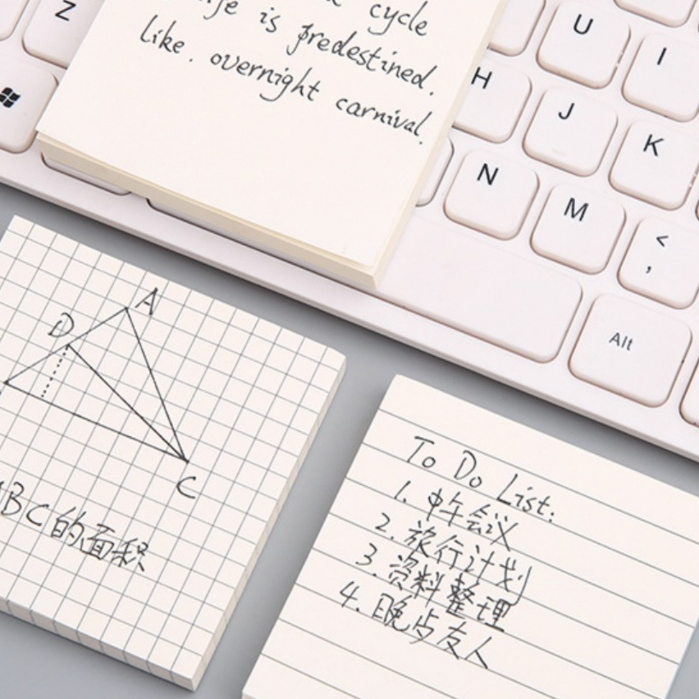 cycle
is predestined.
like. overnight carnival.
Z
U
I
H
J
K
N
M
<
,
Alt
A
D
C
ABC的面积
To Do List:
1. 中午会议
2. 旅行计划
3. 资料整理
4. 晚与友人